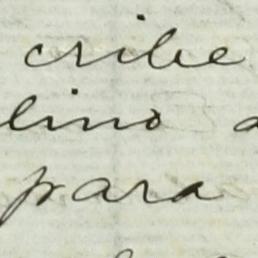 cribe
lino a
para